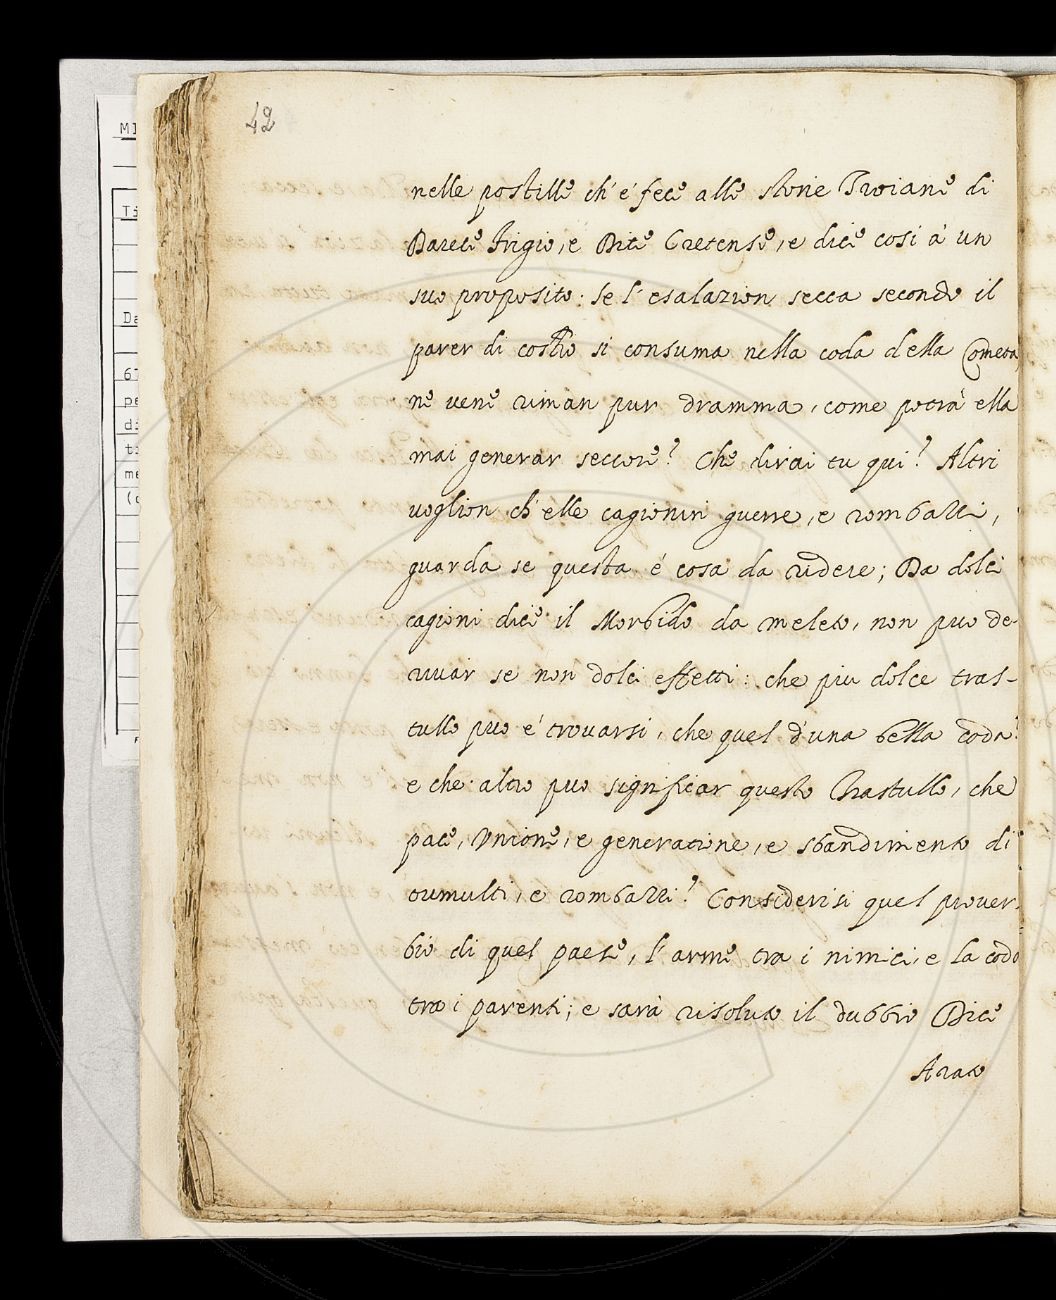 42
nelle postille ch'é fece alle storie Troiane di
Darete Frigio, e Dite Cretense, e dice cosi à un
suo proposito: Se l'esalazion secca secondo il
parer di costro si consuma nella coda della Cometa,
ne vene riman pur dramma, come potrà ella
mai generar seccore? Che dirai tu qui? Altri
voglion ch'elle cagionin guerre, e rombazzi,
guarda se questa é cosa da ridere; Da dolci
cagioni dice il Morbido da meleto, non puo de-
rivar se non dolci effetti: che piu dolce tras-
tullo puo é trovarsi, che quel d'una bella coda?
e che altro puo significar questo Trastullo, che
pace, Vnione, e generazione, e sbandimento di
tumulti, e rombazzi? Considerisi quel prover-
bio di quel paese, l'arme tra i nimici, e la coda
tra i parenti; e sarà risoluto il dubbio Dice
Arato
MI
Ti
Da
67
pe
di
ti
me
(c